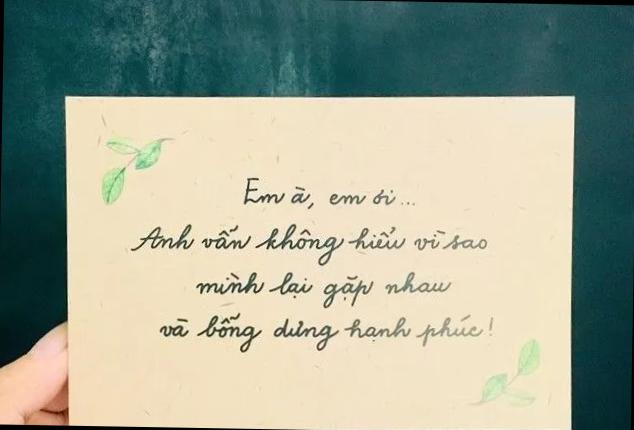 Em à, em ơi...
Anh vẫn không hiểu vì sao
mình lại gặp nhau
và bỗng dưng hạnh phúc!